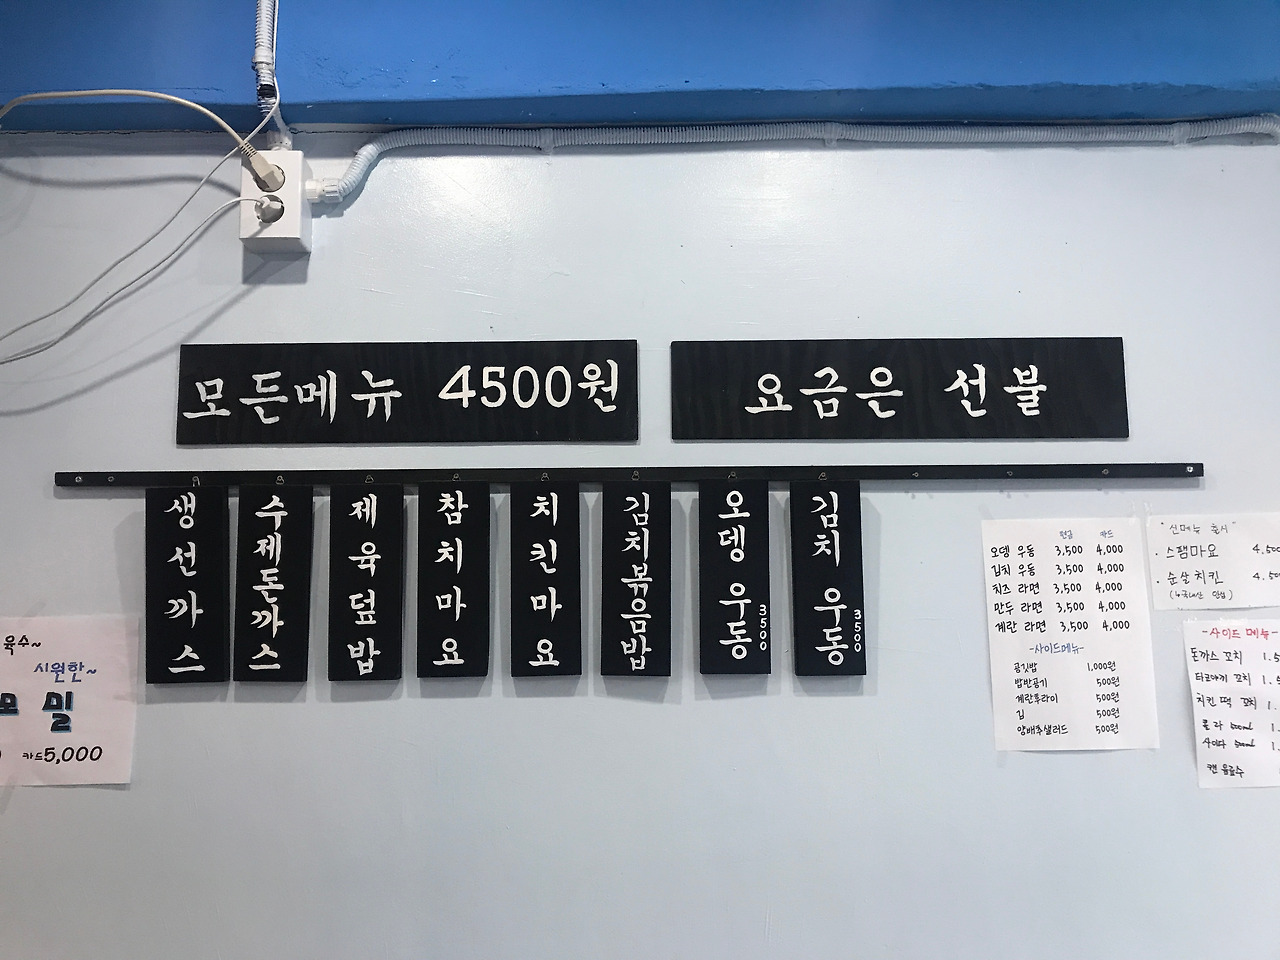 모든메뉴 4500원
요금은 선불
생선까스
수제돈까스
제육덮밥
참치마요
치킨마요
김치볶음밥
오뎅 우동 3500
김치 우동 3500
육수~
시원한~
모밀
카드5,000
현금 카드
오뎅 우동 3,500 4,000
김치 우동 3,500 4,000
치즈 라면 3,500 4,000
만두 라면 3,500 4,000
계란 라면 3,500 4,000
-사이드메뉴-
공깃밥 1,000원
밥반공기 500원
계란후라이 500원
김 500원
양배추샐러드 500원
"신메뉴 출시"
· 스팸마요 4.500
· 순살치킨 4.50
-사이드 메뉴-
돈까스 꼬치 1.5
타코야끼 꼬치 1.5
치킨 떡 꼬치 1.
콜라 500ml 1.
사이다 500ml 1.
캔 음료수